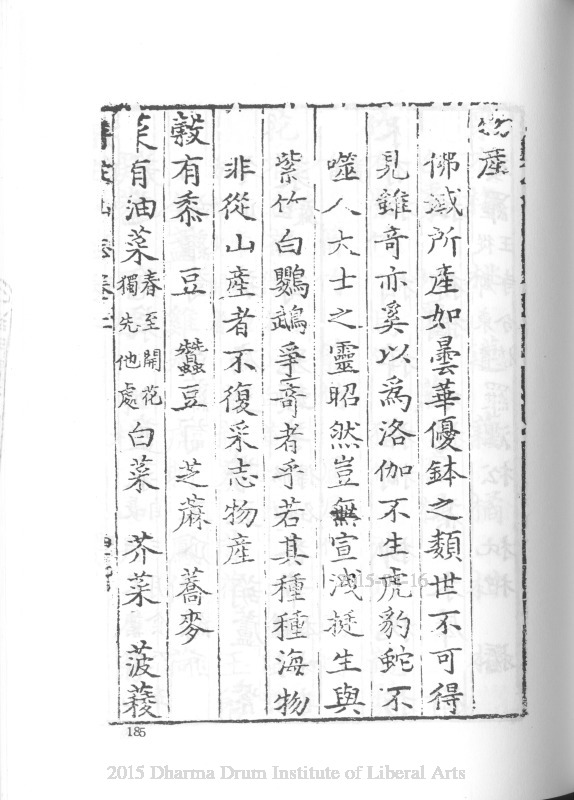 物產
佛域所產如曇華優鉢之類世不可得
見雖奇亦奚以爲洛伽不生虎豹蛇不
噬人大士之靈昭然豈無宣洩挺生與
紫竹白鸚鵡爭奇者乎若其種種海物
非從山產者不復采志物產
穀有黍 豆 蠶豆 芝蔴 蕎麥
菜有油菜春至開花獨先他處白菜 芥菜 菠薐
185
2015 Dharma Drum Institute of Liberal Arts